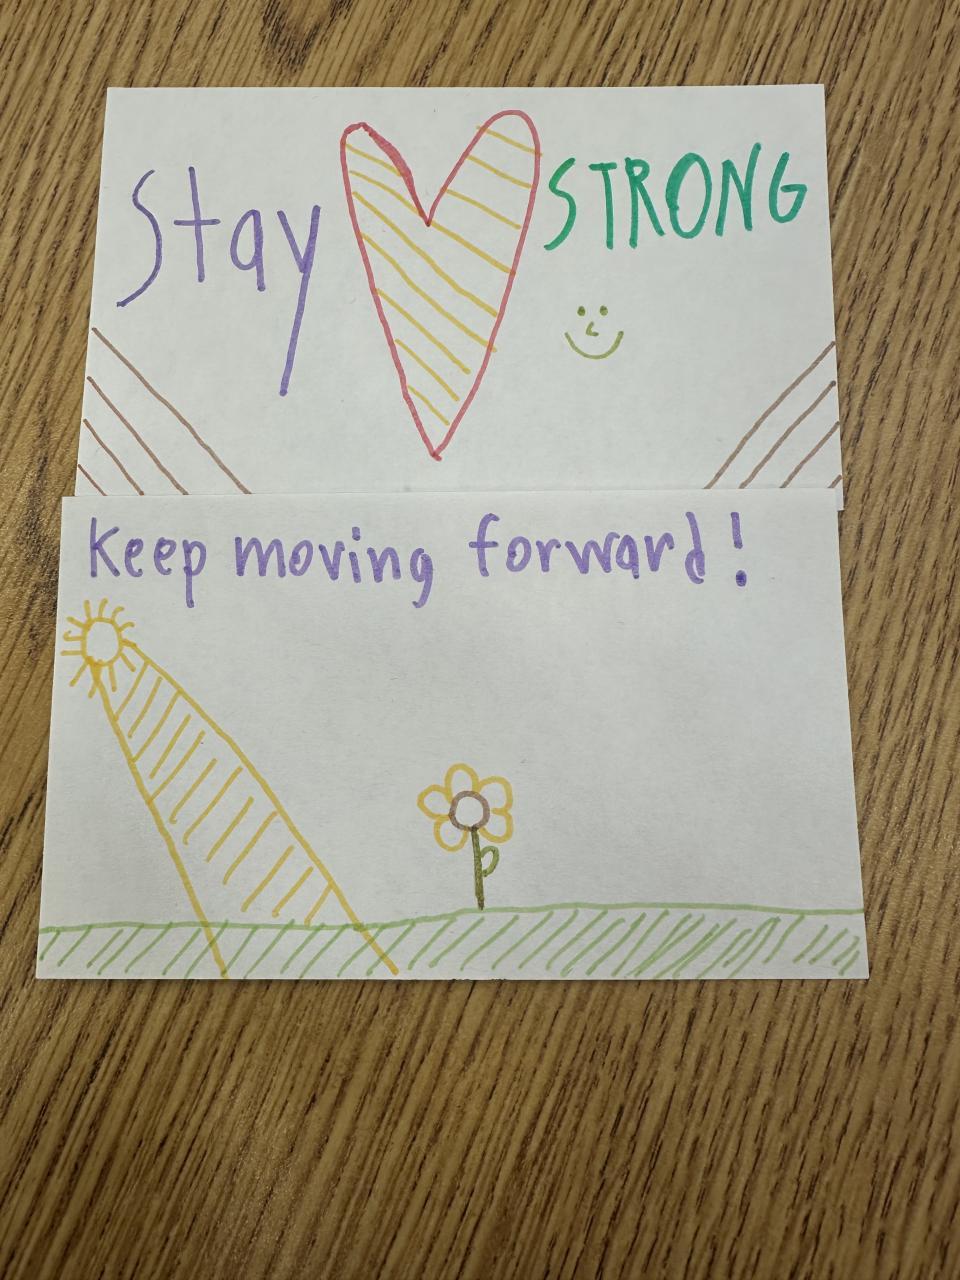 Stay STRONG
Keep moving forward!